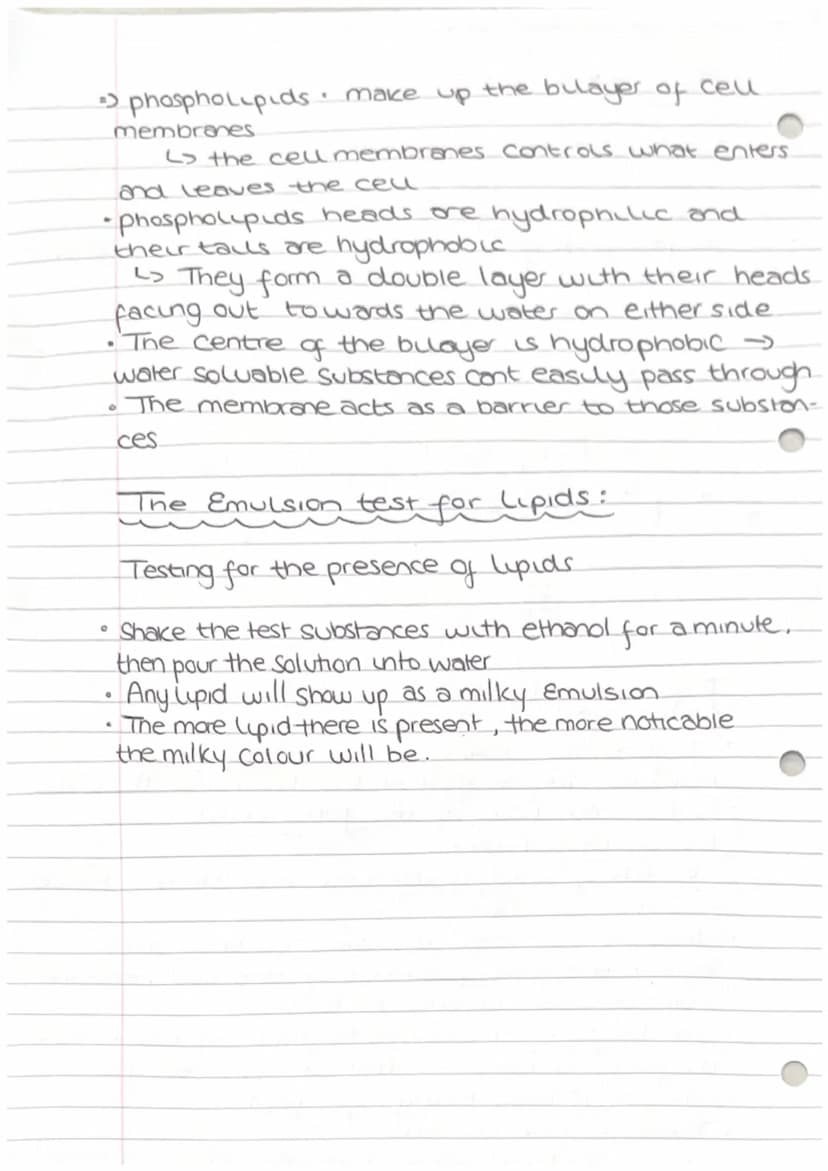 => phospholipids · make up the bilayer of cell
membranes
↳ the cell membranes controls what enters
and leaves the cell
· phospholipids heads are hydrophilic and
their tails are hydrophobic
↳ They form a double layer with their heads
facing out towards the water on either side
· The centre of the bilayer is hydrophobic →
water soluable substances cant easily pass through
· The membrane acts as a barrier to those substan-
ces
The Emulsion test for Lipids:
Testing for the presence of lipids
· Shake the test substances with ethanol for a minute,
then pour the solution into water
· Any lipid will show up as a milky Emulsion
· The more lipid there is present, the more noticable
the milky colour will be.